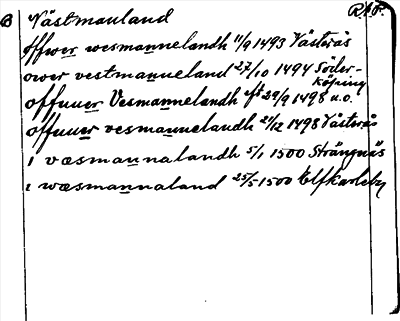 B Västmanland R.P.
offwer wesmannelandh 11/9 1493 Västerås
ower vestmanneland 27/10 1494 Söder-
köping
offuuer Vesmannelandh 29/9 1498 u.o.
offuuer vesmannelandh 21/12 1498 Västerås
i væsmannalandh 5/1 1500 Strängnäs
i wæsmannaland 25/5 1500 Elfkarleby